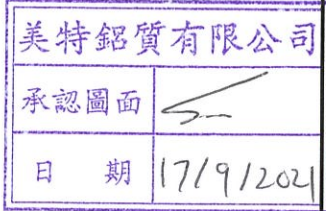 美特鋁質有限公司
承認圖面
日 期 17/9/2021